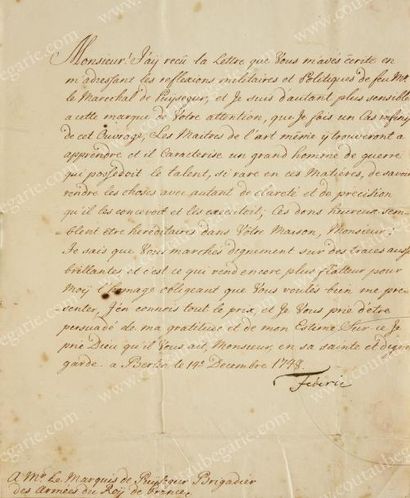 Monsieur! J'ay reçû la Lettre que Vous m'avés écrite en
m'adressant les reflexions militaires et Politiques de feu Mr
le Marechal de Puysegur, et Je suis d'autant plus sensible
a cette marque de Votre attention, que je fais un cas
de cet Ouvrage, Les Maitres de l'art même y trouveront a
apprendre et il Caracterise un grand homme de guerre
qui possedoit le talent, si rare en ces Matières, de savoir
rendre les choses avec autant de clareté et de precision
qu'il les concevoit et les executoit; ces dons heureux sem
blent être hereditaires dans Vôtre Maison, Monsieur!
Je sais que Vous marchés dignement sur des traces aussi
brillantes et c'est ce qui rend encore plus flatteur pour
Moÿ l'homage obligeant que Vous voulés bien me pre
senter, J'en connois tout le prix, et Je Vous prie d'etre
persuadé de ma gratitude et de mon Estime Sur ce Je
prie Dieu qu'il Vous ait, Monsieur, en sa sainte et digne
garde. a Berlin le 14e Decembre 1748.
Federic
A Mr. Le Marquis de Puysegur Brigadier
des Armées du Roÿ de france,
www.coutaubegarie.com